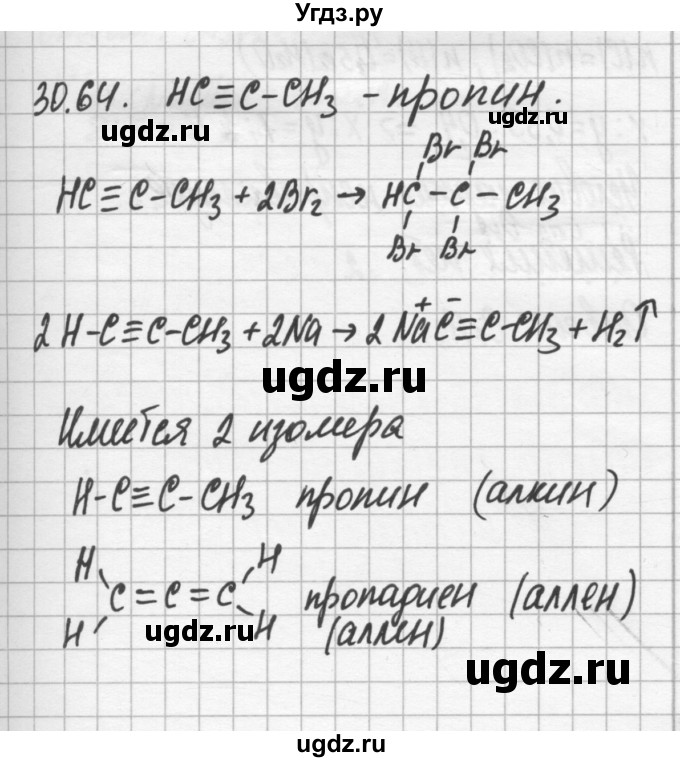 Угдз.ру
30.64. HC≡C-CH3 - пропин.
ugdz.ru
ugdz.ru
Br Br
HC≡C-CH3 + 2Br2 → HC - C - CH3
Br Br
2 H-C≡C-CH3 + 2Na → 2 Na⁺C⁻≡C-CH3 + H2↑
ugdz.ru
Имеется 2 изомера
H-C≡C-CH3 пропин (алкин)
H H
C=C=C пропадиен (аллен)
H H
ugdz.ru
(аллен)
ugdz.ru
ugdz.ru